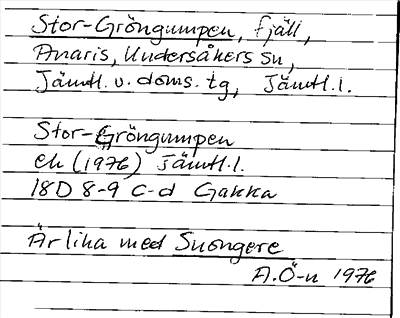 Stor-Gröngumpen, fjäll,
Anaris, Undersåkers sn,
Jämtl. v. doms. tg, Jämtl. l.
Stor-Gröngumpen
ek (1976) Jämtl. l.
18D 8-9 c-d Gakka
Är lika med Snongere
A.Ö-n 1976